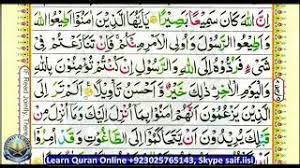 اِنَّ اللّٰهَ كَانَ سَمِيْعًۢا بَصِيْرًا يٰٓاَيُّهَا الَّذِيْنَ اٰمَنُوْٓا اَطِيْعُوا اللّٰهَ
وَاَطِيْعُوا الرَّسُوْلَ وَاُولِى الْاَمْرِ مِنْكُمْ فَاِنْ تَنَازَعْتُمْ فِيْ
شَىْءٍ فَرُدُّوْهُ اِلَى اللّٰهِ وَالرَّسُوْلِ اِنْ كُنْتُمْ تُؤْمِنُوْنَ بِاللّٰهِ
وَالْيَوْمِ الْاٰخِرِ ذٰلِكَ خَيْرٌ وَّاَحْسَنُ تَاْوِيْلًا اَلَمْ تَرَ اِلَى
الَّذِيْنَ يَزْعُمُوْنَ اَنَّهُمْ اٰمَنُوْا بِمَآ اُنْزِلَ اِلَيْكَ وَمَآ اُنْزِلَ
مِنْ قَبْلِكَ يُرِيْدُوْنَ اَنْ يَّتَحَاكَمُوْٓا اِلَى الطَّاغُوْتِ وَقَدْ
Learn Quran Online +923025765143, Skype saif.iisi